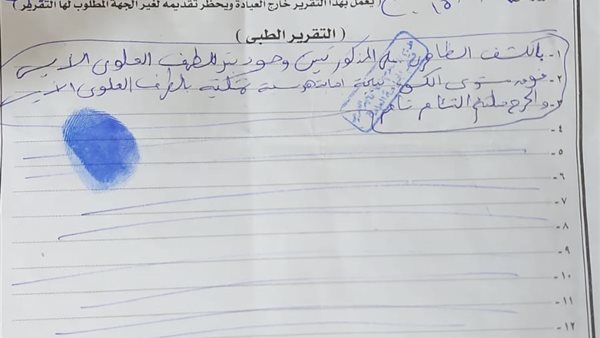 يعمل بهذا التقرير خارج العيادة ويحظر تقديمه لغير الجهة المطلوب لها التقرير )
( التقرير الطبى )
١- بالكشف الظاهرى على المذكور تبين وجود بتر للطرف العلوى الأيسر
٢- فوق مستوى الكوع نتيجة اصابة بالطرف العلوى الأيسر
٣- والجرح ملتئم التئام تام
٤ -
٥ -
٦ -
٧ -
٨ -
٩ -
١٠ -
١١ -
١٢ -